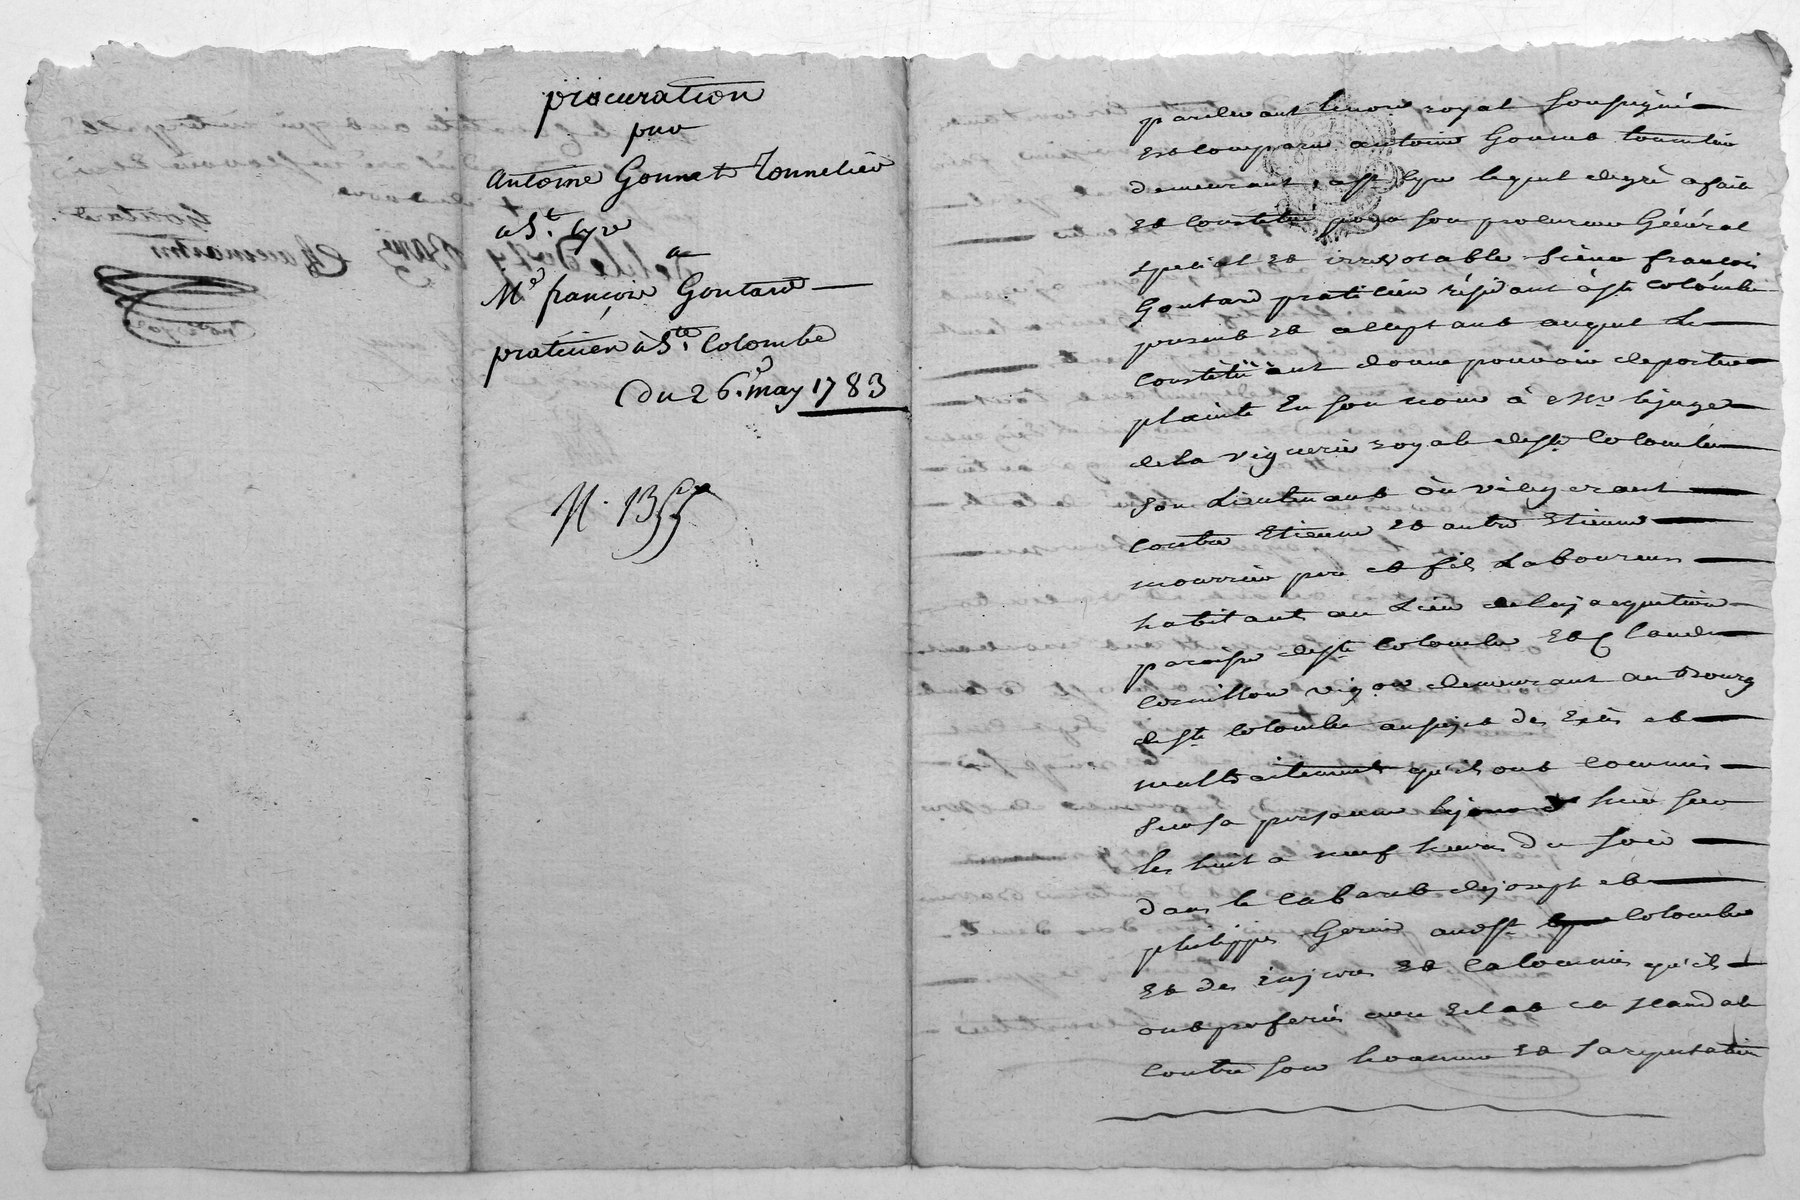 procuration
par
antoine Gonnet Tonnelier
a St. Cyre
a
Me françois Goutard
praticien a Ste. Colombe
du 26. may 1783
N. 13
pardevant le notre royal soussigné
Est comparu antoine Gounet tonnelier
demeurant à St Cyre lequel de gré a fait
et constitué pour son procureur Général
special et irrevocable Sieur francois
Goutard praticien résidant à Ste Colombe
present et acceptant auquel le
constituant donne pouvoir de porter
plainte en son nom à Mr le juge
de la viguerie royale de Ste Colombe
son Lieutenant ou vice gerant
contre Etienne et autre Etienne
mourrier pere et fils Laboureurs
habitants au Lieu de
paroisse de Ste Colombe et Claude
Cornillon vigon demeurant au Bourg
de Ste Colombe au sujet des Excès et
maltraitements qu'ils ont commis
sur sa personne le jour d'hier sur
les huit a neuf heures du soir
dans le Cabaret de joseph et
philippe Gerin aud St Colombe
et des injures et calomnies qu'ils
ont proferés avec Eclat et scandale
contre son honneur et sa reputation